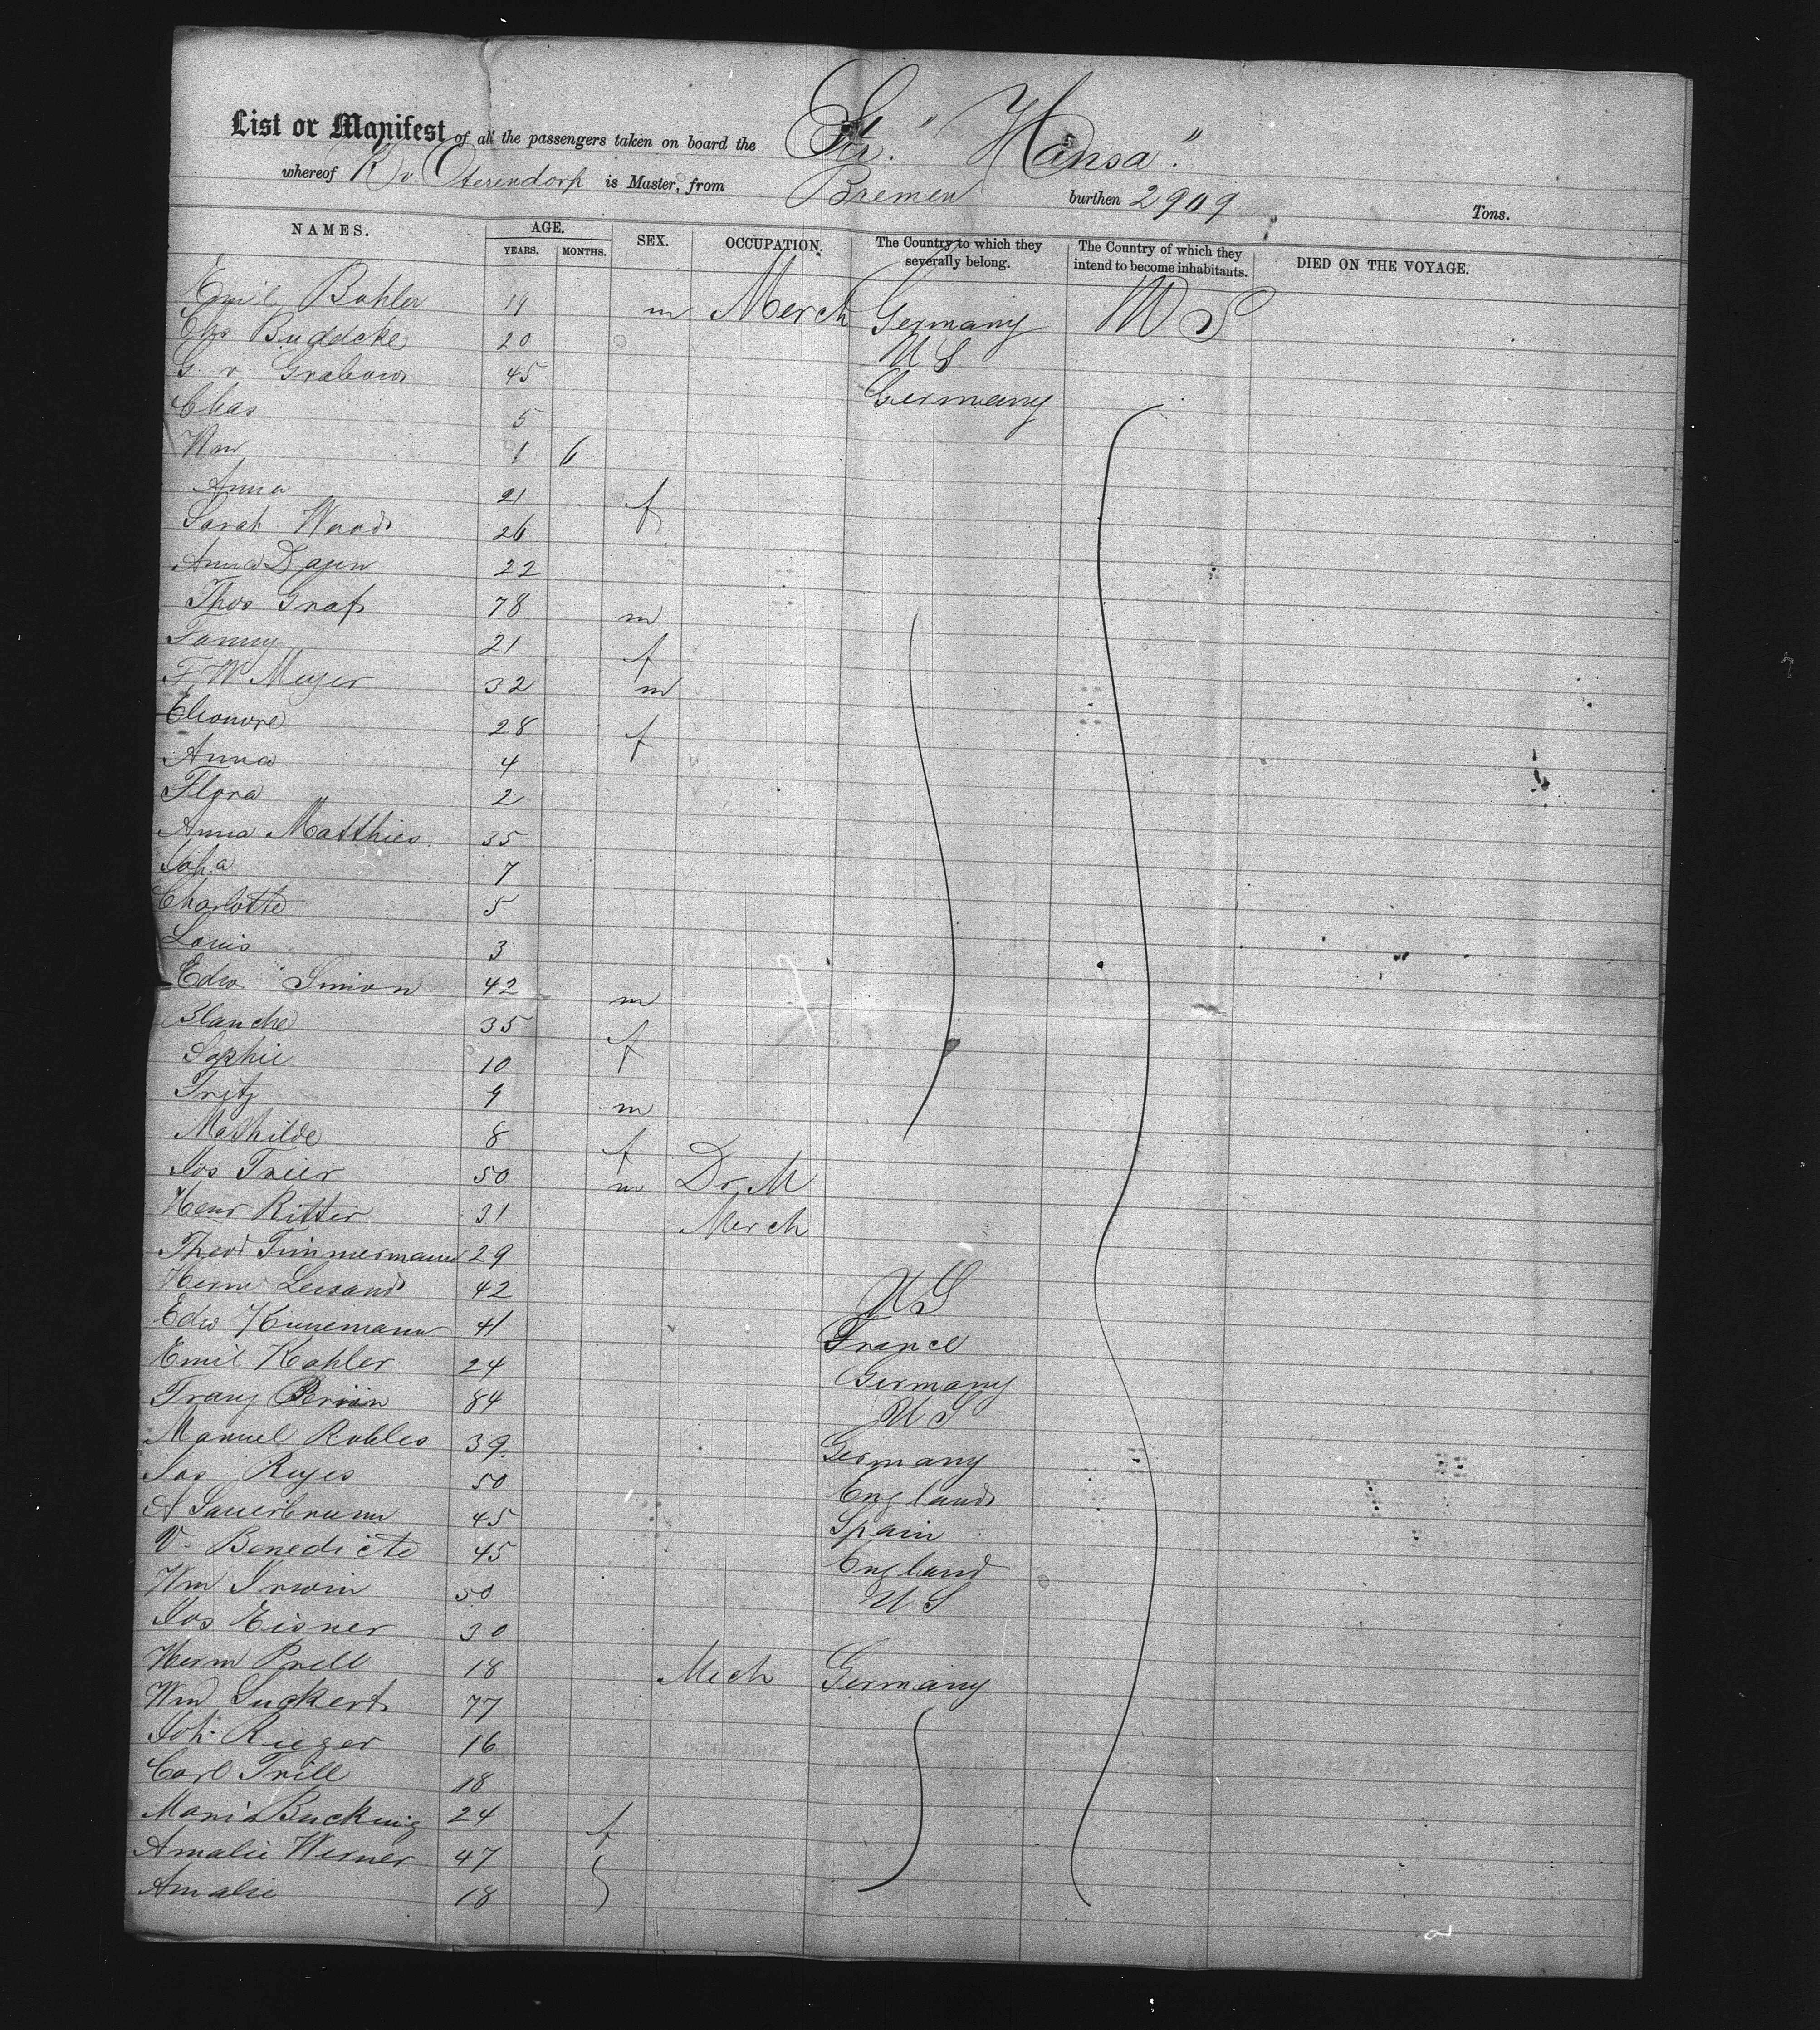 List or Manifest of all the passengers taken on board the Str. "Hansa".
whereof R v. Oterendorp is Master, from Bremen burthen 2909 Tons.
NAMES. AGE. YEARS. MONTHS. SEX. OCCUPATION. The Country to which they severally belong. The Country of which they intend to become inhabitants. DIED ON THE VOYAGE.
Emil Bohler 19 m Merch Germany U S
Chs Buddcke 20 U S
G. v Grabow 45 Germany
Chas 5
Wm 1 6
Anna 21 f
Sarah Woods 26
Anna 22
Thos Graf 78 m
Fanny 21 f
F W Meyer 32 m
Eleonore 28 f
Anna 4
Flora 2
Anna Matthies 35
Joha 7
Charlotte 5
Louis 3
Edw Simon 42 m
Blanche 35 f
Sophie 10 f
Fritz 9 m
Mathilde 8 f
Jos Trier 50 m Dr. M
Henr Ritter 31 Merch
Theod Timmermann 29
Herm 42 U S
Edw Hunemann 41 France
Emil Kohler 24 Germany
Franz 84 U S
Manuel Robles 39 Germany
Jos Reyes 50 England
A Sauerbrunn 45 Spain
V. Benedicte 45 England
Wm Irwin 50 U S
Jos Eisner 30
Herm Prell 18 Mech Germany
Wm Luckert 77
Joh. Rieger 16
Carl Trill 18
Maria Bucking 24 f
Amalie Werner 47
Amalie 18